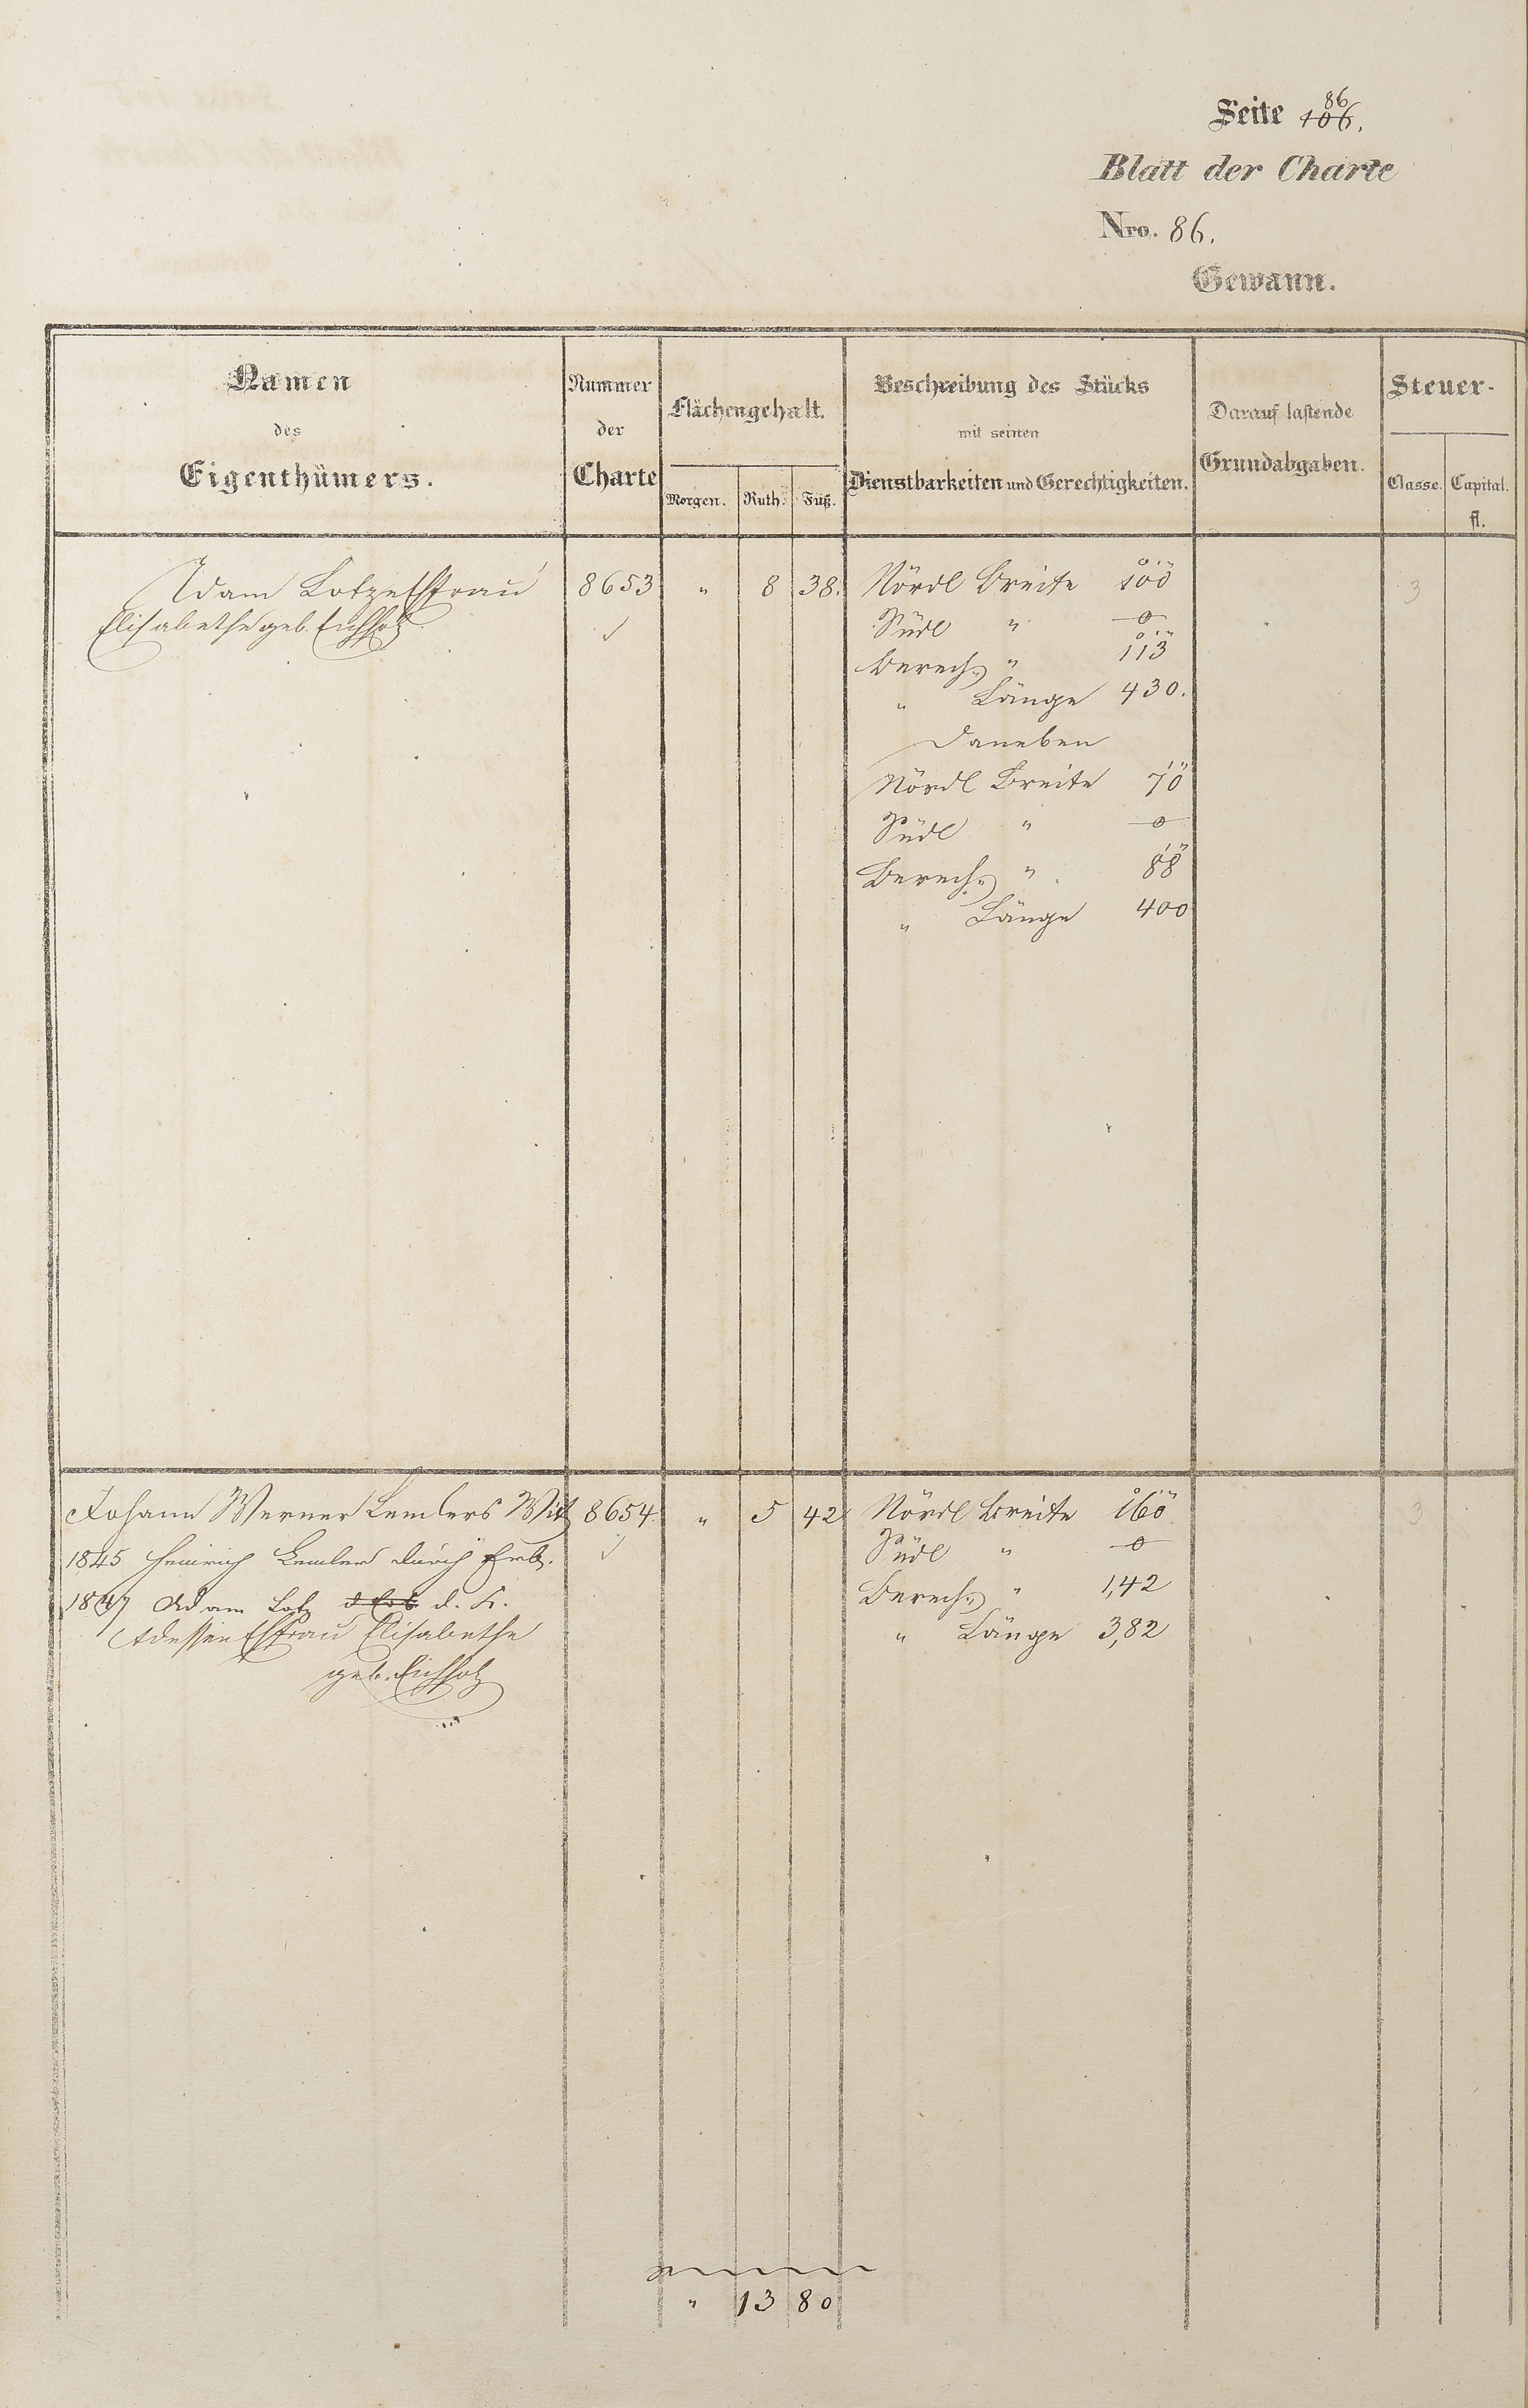 Seite 106. 86
Blatt der Charte
Nro. 86.
Gewann.
Namen
des
Eigenthümers.
Nummer
der
Charte
Flächengehalt.
Morgen. Ruth. Fuß.
Beschreibung des Stücks
mit seinen
Dienstbarkeiten und Gerechtigkeiten.
Darauf lastende
Grundabgaben.
Steuer-
Classe. Capital.
fl.
Adam Lotze Ehfrau 8653 " 8 38. Nördl Breite 100
Elisabethe geb. Eichholz Südl " 0
Berech. " 113
" Länge 430.
Daneben
Nördl Breite 70
Südl " 0
Berech. " 88
" Länge 400
3
Johann Werner Lemlers Wit 8654 " 5 42 Nördl Breite 160
1845 Heinrich Lemler durch Erb. Südl " 0
1847 Adam Lotz d Erb d. K. Berech. " 1,42
dessen Ehfrau Elisabethe " Länge 3,82
geb. Eichholz
3
" 13 80